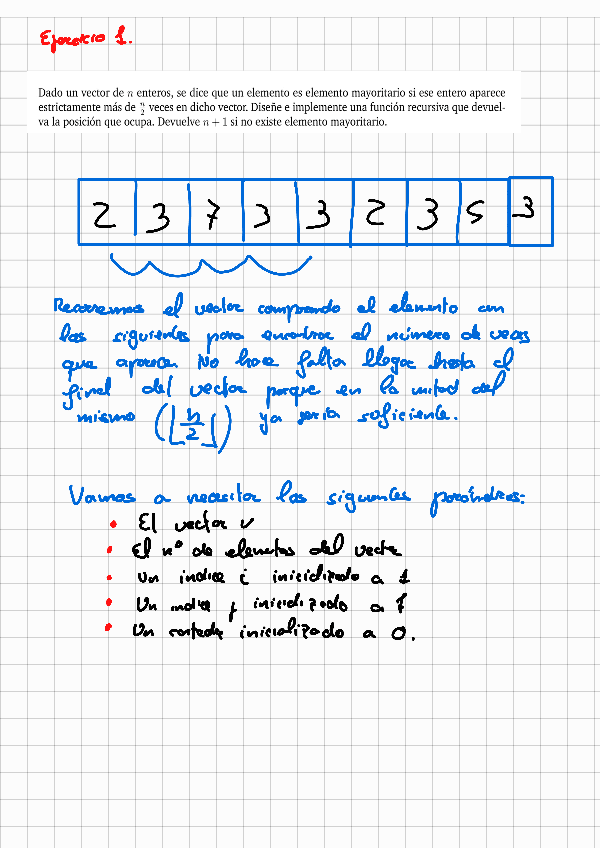 Ejercicio 1.
Dado un vector de n enteros, se dice que un elemento es elemento mayoritario si ese entero aparece
estrictamente más de n/2 veces en dicho vector. Diseñe e implemente una función recursiva que devuel-
va la posición que ocupa. Devuelve n + 1 si no existe elemento mayoritario.
2 3 7 3 3 2 3 5 3
Recorremos el vector comprando el elemento con
los siguientes para encontrar el número de veces
que aparece. No hace falta llegar hasta el
final del vector porque en la mitad del
mismo (⌊n/2⌋) ya sería suficiente.
Vamos a necesitar los siguientes parámetros:
• El vector v
• El nº de elementos del vector
• Un indice i inicializado a 1
• Un indice j inicializado a 1
• Un contador inicializado a 0.